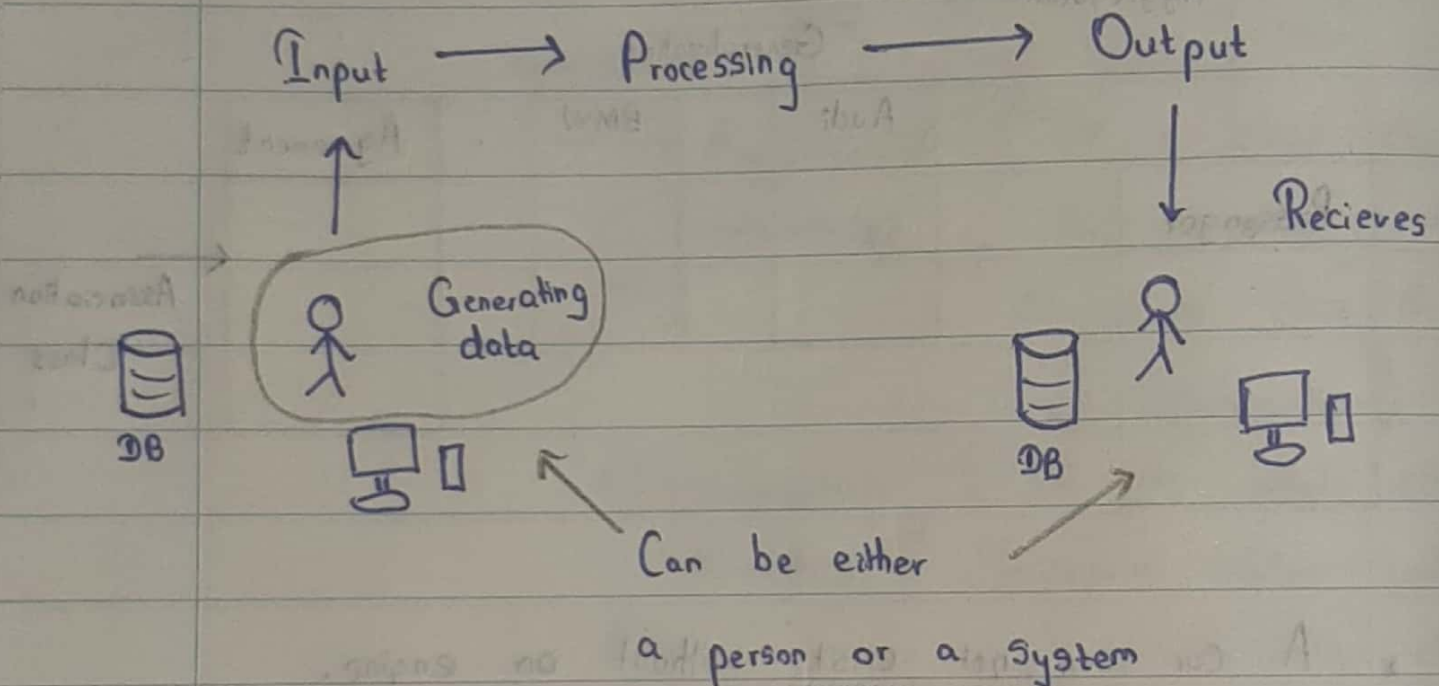 Input → Processing → Output
Recieves
Generating
data
DB
DB
Can be either
a person or a system